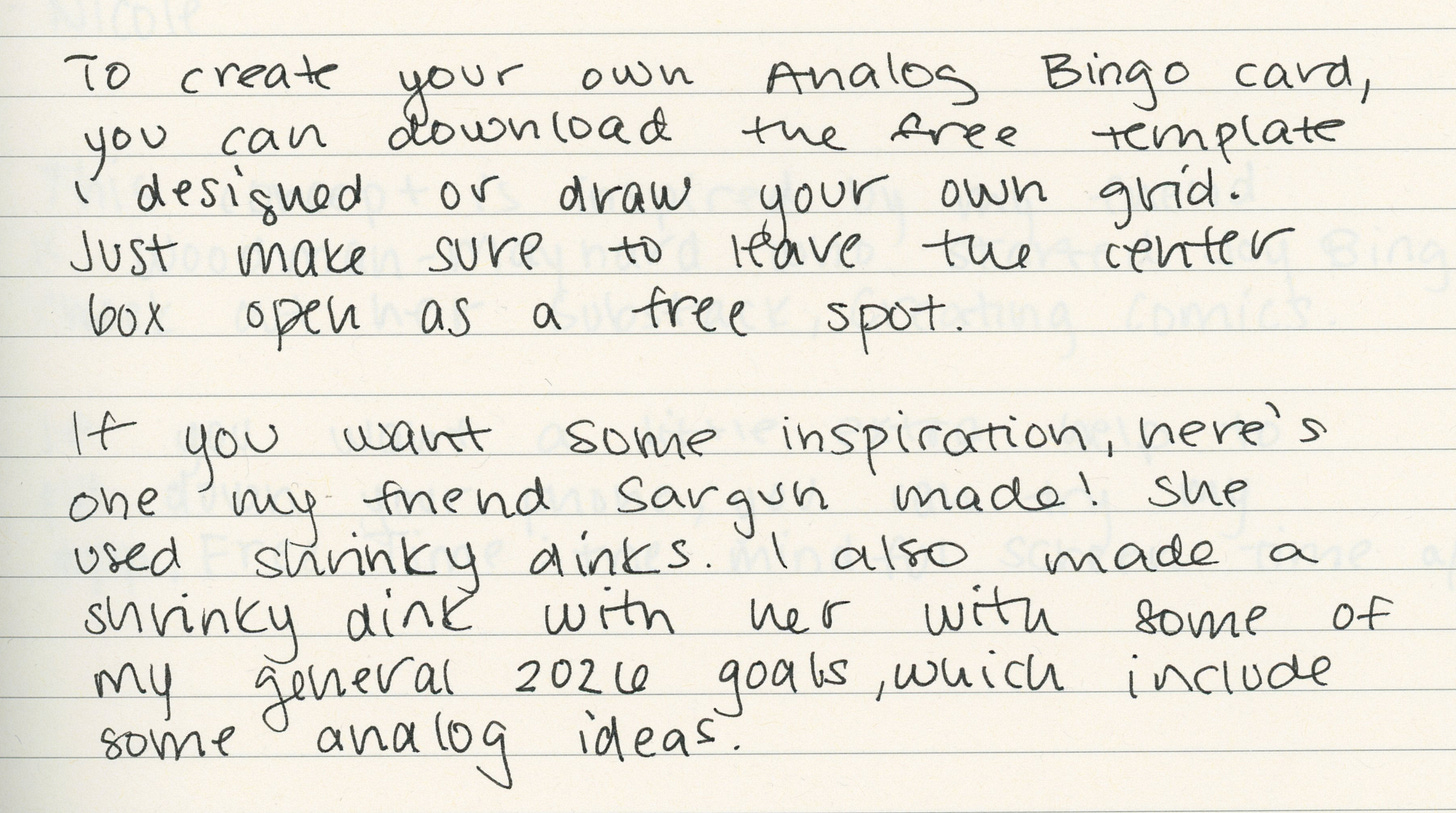 To create your own Analog Bingo card,
you can download the free template
i designed or draw your own grid.
Just make sure to leave the center
box open as a free spot.
If you want some inspiration, here's
one my friend Sargun made! She
used shrinky dinks. I also made a
shrinky dink with her with some of
my general 2026 goals, which include
some analog ideas.